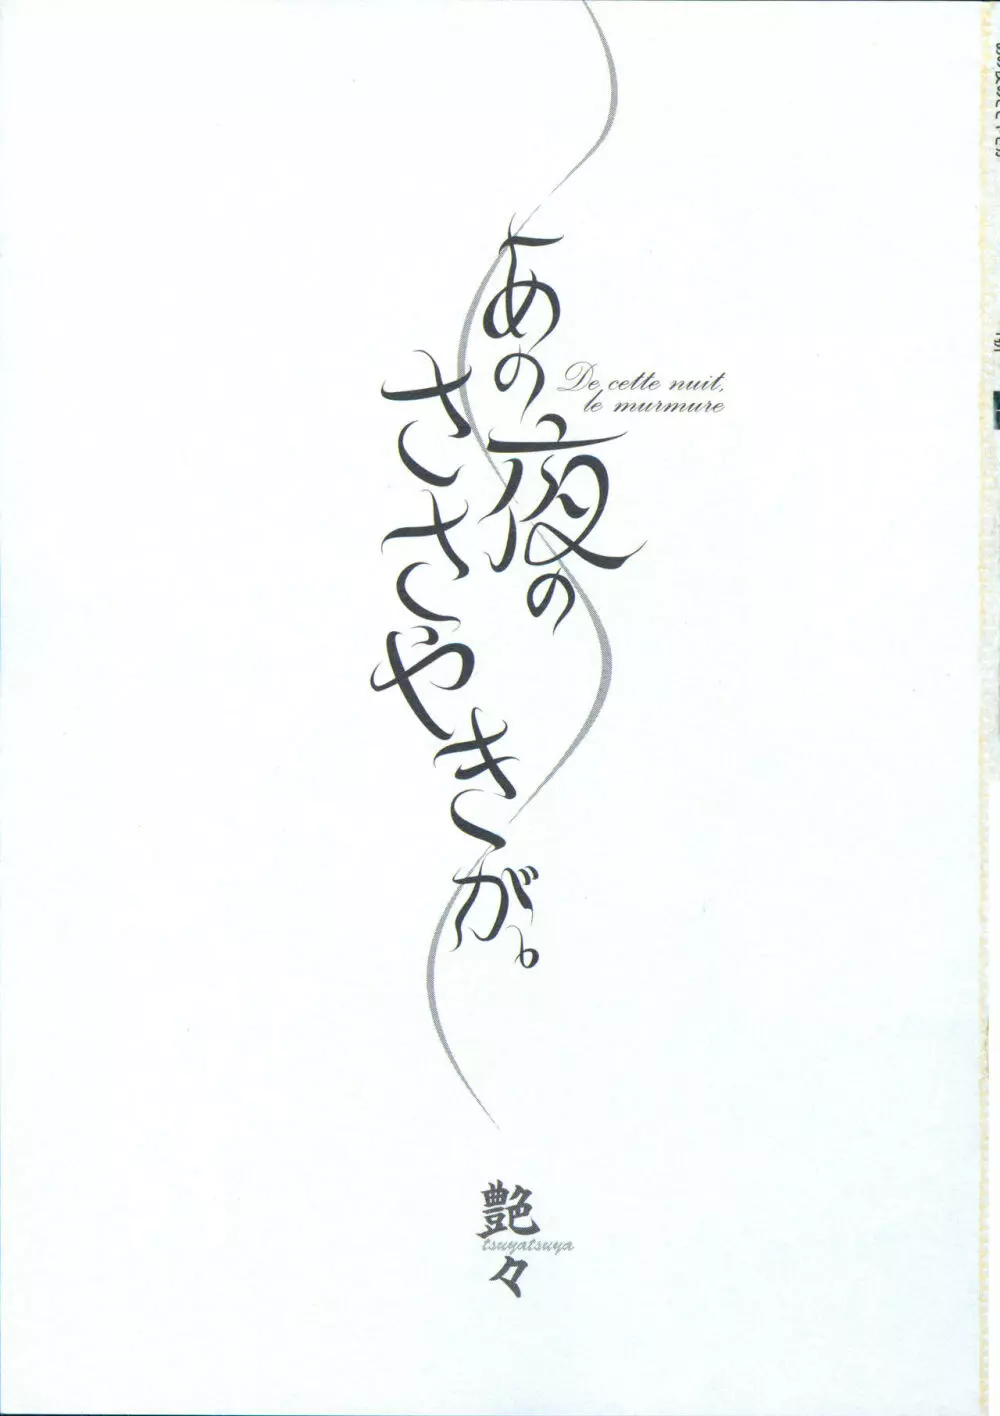 あの夜の
ささやきが。
De cette nuit,
le murmure
艶々
tsuyatsuya